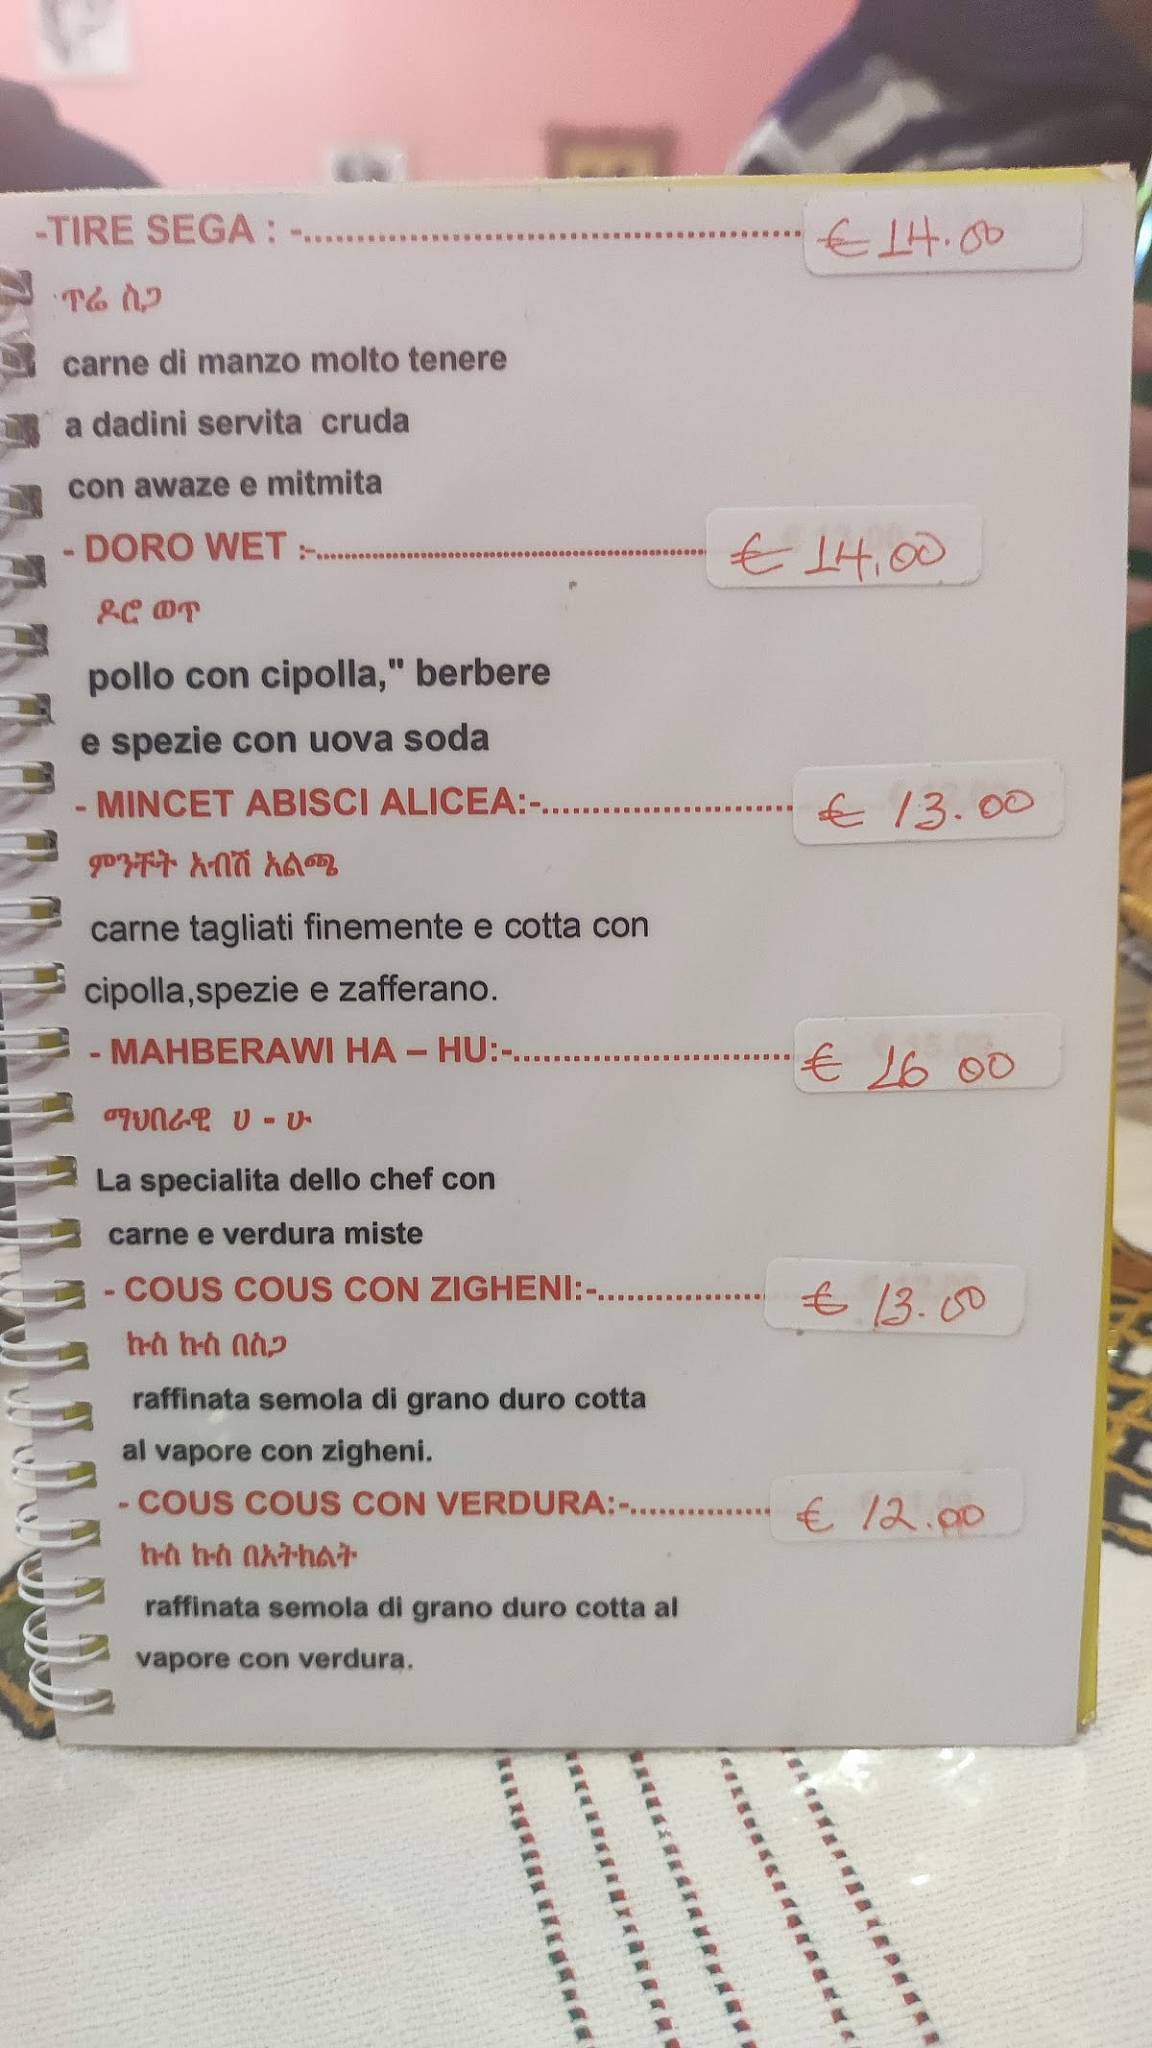 -TIRE SEGA : -............................................... € 14.00
ጥሬ ስጋ
carne di manzo molto tenere
a dadini servita cruda
con awaze e mitmita
- DORO WET :-....................................................... € 14.00
ዶሮ ወጥ
pollo con cipolla," berbere
e spezie con uova soda
- MINCET ABISCI ALICEA:-......................... € 13.00
ምንቸት አብሽ አልጫ
carne tagliati finemente e cotta con
cipolla,spezie e zafferano.
- MAHBERAWI HA – HU:-............................ € 16 00
ማህበራዊ ሀ - ሁ
La specialita dello chef con
carne e verdura miste
- COUS COUS CON ZIGHENI:-................. € 13.00
ኩስ ኩስ በስጋ
raffinata semola di grano duro cotta
al vapore con zigheni.
- COUS COUS CON VERDURA:-.............. € 12.00
ኩስ ኩስ በአትክልት
raffinata semola di grano duro cotta al
vapore con verdura.